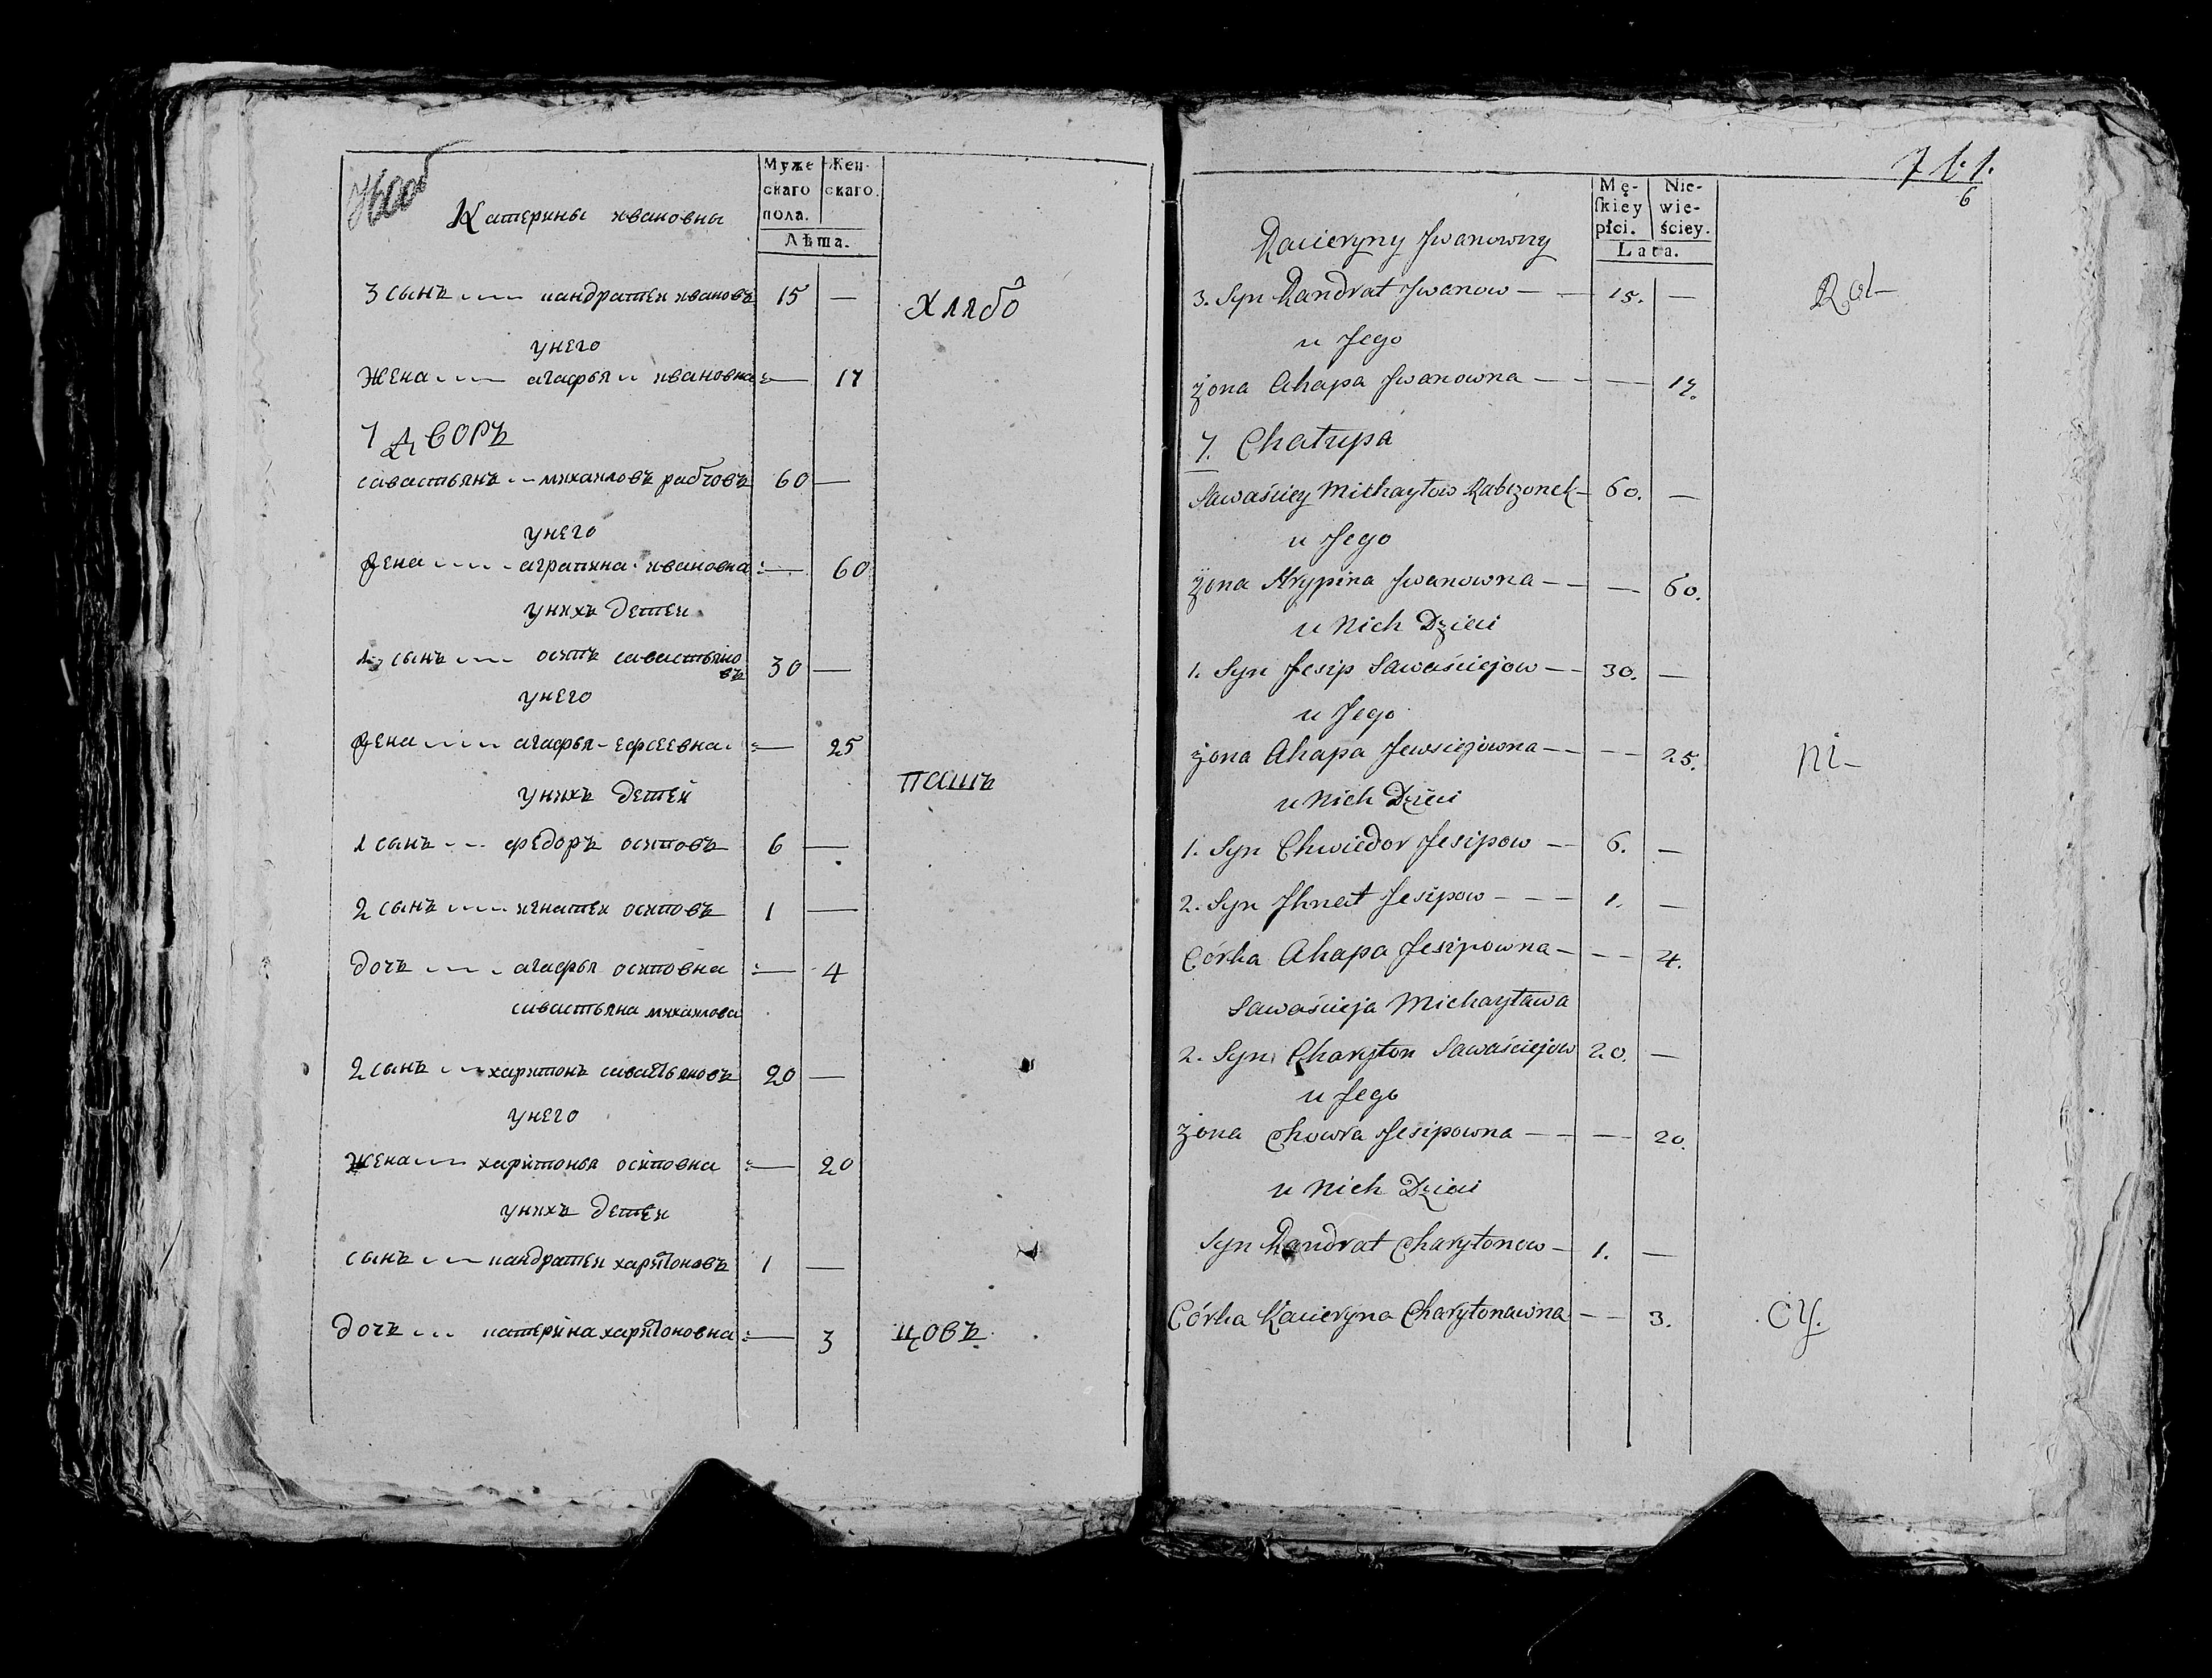 Муже
скаго
пола.
Жен-
скаго.
Лѣта.
Катерины ивановны
3 сынъ кандратеи ивановъ 15 —
хлѣбо
унего
Жена агафья ивановна — 17
7 дворъ
савастьянъ михаиловъ рабчовъ 60 —
унего
жена аграпина ивановна — 60
унихъ детеи
1 сынъ осипъ савастьяно
въ 30 —
унего
жена агафья ефсеевна — 25
пашъ
унихъ детеи
1 сынъ федоръ осиповъ 6 —
2 сынъ игнатеи осиповъ 1 —
дочь агафья осиповна — 4
савастьяна михаилова
2 сынъ харитонъ савастьяновъ 20 —
унего
Жена харитонья осиповна — 20
унихъ детеи
сынъ кандратеи харитоновъ 1 —
дочь катерина харитоновна — 3
цовъ
7 1.1.
6
Mę-
ſkiey
płci.
Nie-
wie-
ściey.
Lata.
Kacieryny Jwanowny
3. Syn Kandrat Jwanow — 15. —
Rol-
u Jego
żona Ahapa Jwanowna — — 17.
7. Chatupa
Sawaściey Michayłow Rabczonek — 60. —
u Jego
żona Hrypina Jwanowna — — 60.
u Nich Dzieci
1. Syn Jesip Sawaściejow — 30. —
u Jego
żona Ahapa Jewsiejowna — — 25.
ni-
u Nich Dzieci
1. Syn Chwiedor Jesipow — 6. —
2. Syn Jhnat Jesipow — 1. —
Córka Ahapa Jesipowna — — 4.
Sawaścieja Michayława
2. Syn Charyton Sawaściejow 20. —
u Jego
żona Chowra Jesipowna — — 20.
u Nich Dzieci
Syn Kandrat Charytonow — 1. —
Córka Kacieryna Charytonawna — 3.
cy.